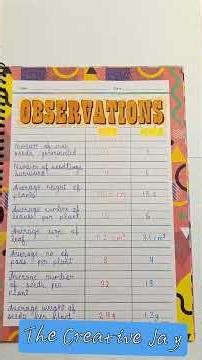 OBSERVATIONS
Number of
seeds germinated
Number of seedlings
survived
Average height of
plants 13.5
Average number of
leaves per plant 6
Average size of
leaf 5.2 cm² 3.1 cm²
Average no. of
pods per plant 8 4
Average number
of seeds per 22 13
plant
Average weight of
seeds per plant 2.8g 1.2g
The Creative Jay